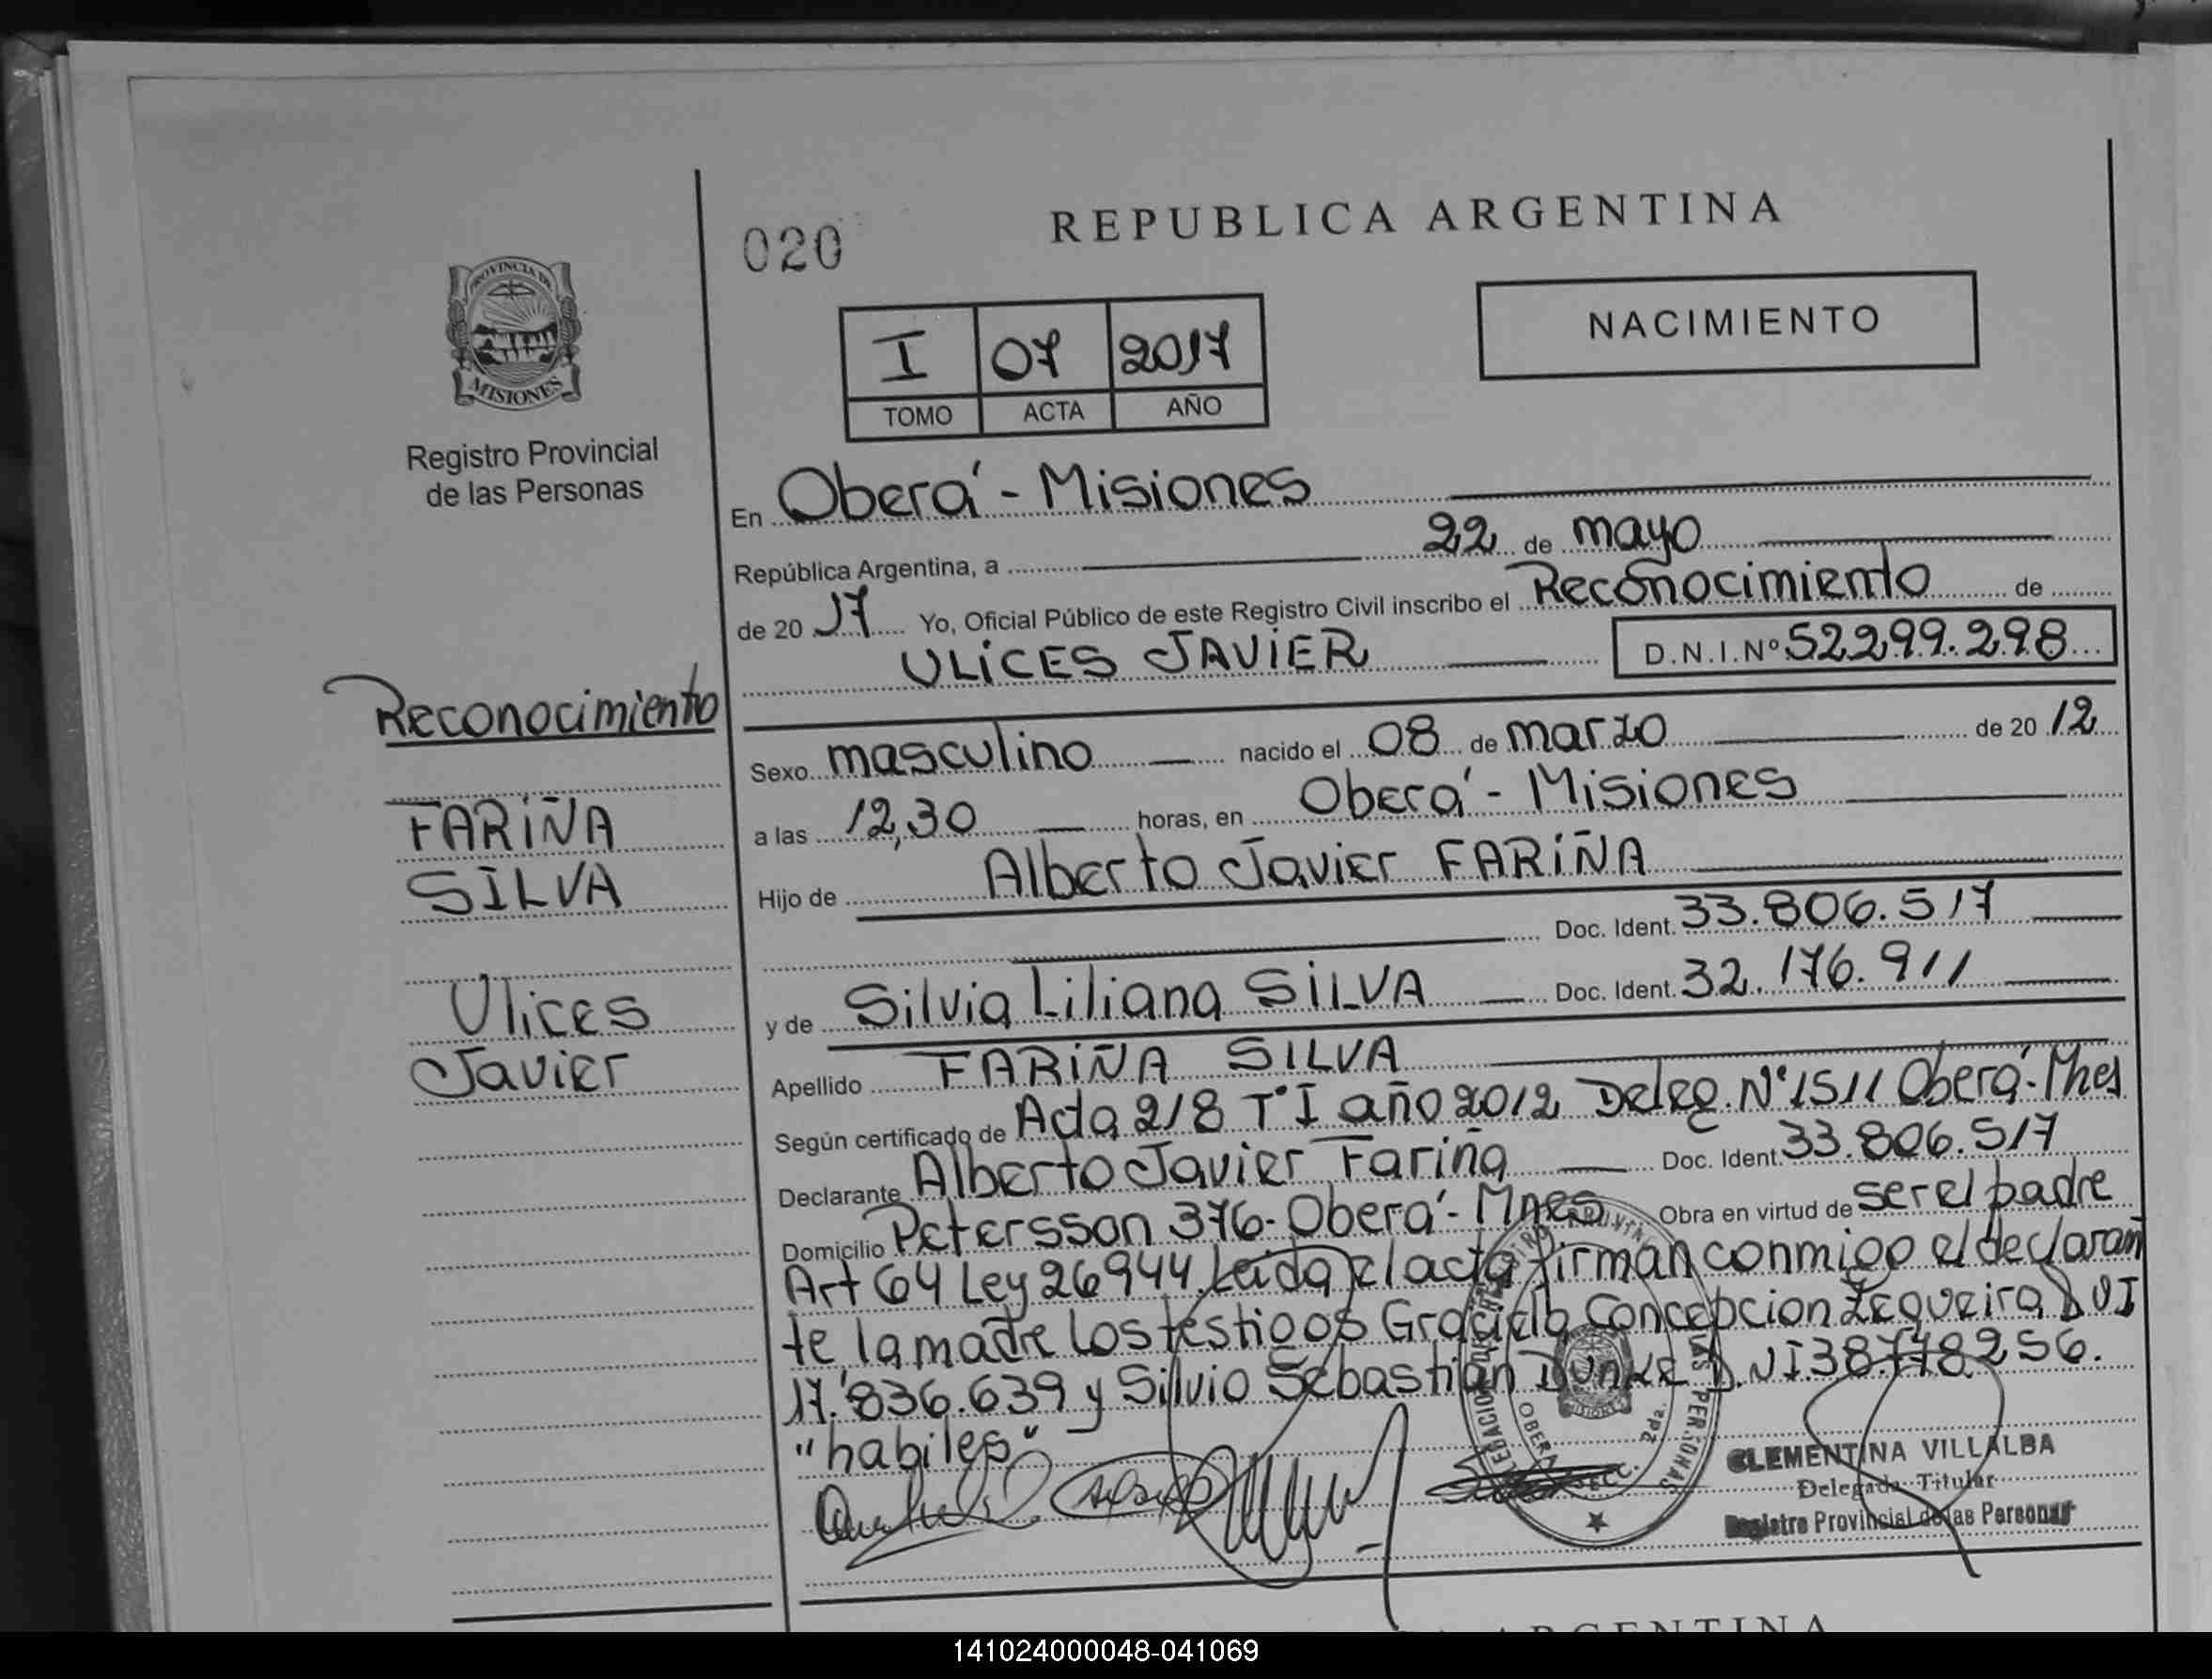 020
REPUBLICA ARGENTINA
PROVINCIA DE
MISIONES
Registro Provincial
de las Personas
I 07 2017
TOMO ACTA AÑO
NACIMIENTO
En Oberá - Misiones
República Argentina, a 22 de mayo
de 2017 Yo, Oficial Público de este Registro Civil inscribo el Reconocimiento de
ULICES JAVIER D.N.I.Nº 52.299.298
Reconocimiento
FARIÑA
SILVA
Ulices
Javier
Sexo masculino nacido el 08 de marzo de 2012
a las 12,30 horas, en Oberá - Misiones
Hijo de Alberto Javier FARIÑA
Doc. Ident. 33.806.517
y de Silvia Liliana SILVA Doc. Ident. 32.176.911
Apellido FARIÑA SILVA
Según certificado de Acta 218 Tº I año 2012 Deleg. Nº 1511 Oberá - Mnes
Declarante Alberto Javier Fariña Doc. Ident. 33.806.517
Domicilio Petersson 376 - Oberá - Mnes Obra en virtud de ser el padre
Art 64 Ley 26944. Leida el acta firman conmigo el declaran
te la madre los testigos Graciela Concepcion Zequeira DNI
17.836.639 y Silvio Sebastian Dunke D.NI 38.778256.
"habiles"
CLEMENTINA VILLALBA
Delegada Titular
Registro Provincial de las Personas
ARGENTINA
141024000048-041069